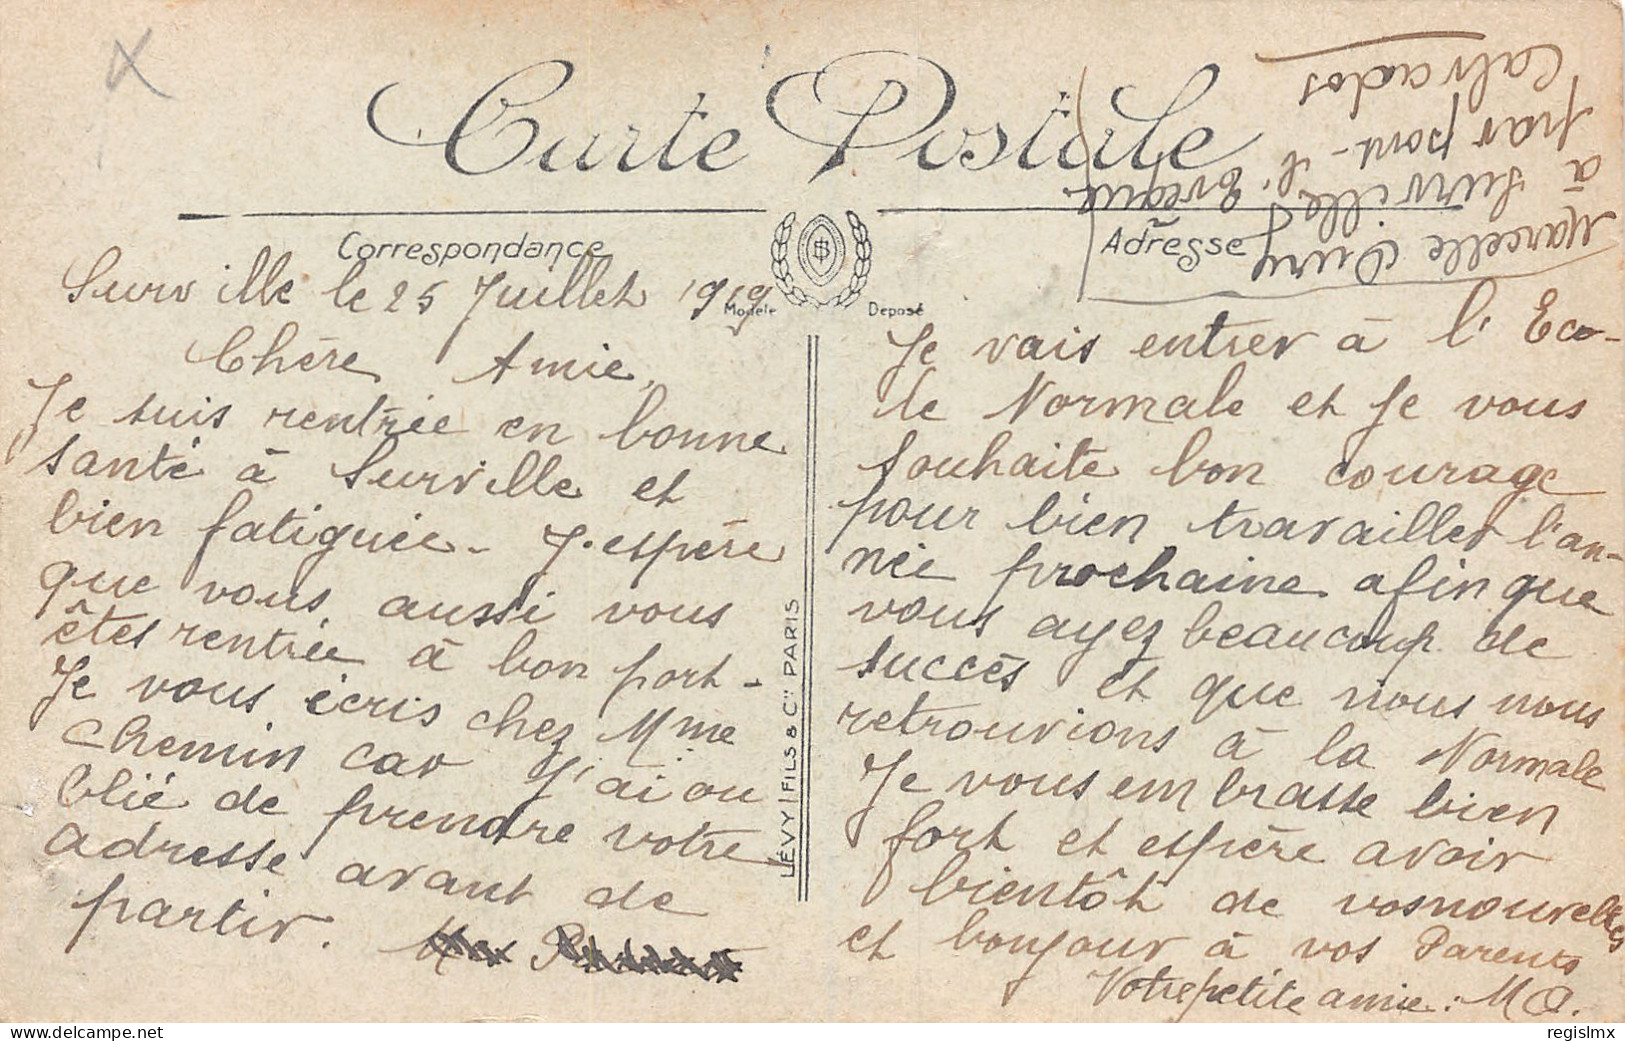 Carte Postale
Correspondance
Adresse
Modèle
Déposé
LÉVY FILS & Cie PARIS
Surville le 25 Juillet 1919
Chère Amie,
Je suis rentrée en bonne
santé à Surville et
bien fatiguée - J'espère
que vous aussi vous
êtes rentrée à bon port -
Je vous écris chez Mme
chemin car j'ai ou
blié de prendre votre
adresse avant de
partir.
Je vais entrer à l'Eco-
le Normale et je vous
souhaite bon courage
pour bien travailler l'an-
née prochaine afin que
vous ayez beaucoup de
succès et que nous nous
retrouvions à la Normale
Je vous embrasse bien
fort et espère avoir
bientôt de vos nouvelles
et bonjour à vos Parents
Votre petite amie : M O.
Marcelle
à Surville
par pont-l'Evêque
Calvados
regisImx